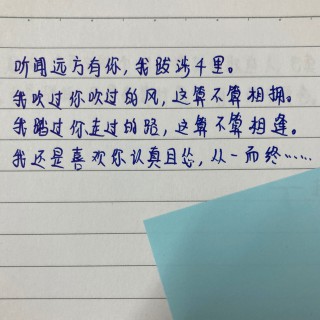 听闻远方有你,我跋涉千里。
我吹过你吹过的风,这算不算相拥。
我踏过你走过的路,这算不算相逢。
我还是喜欢你认真且怂,从一而终……